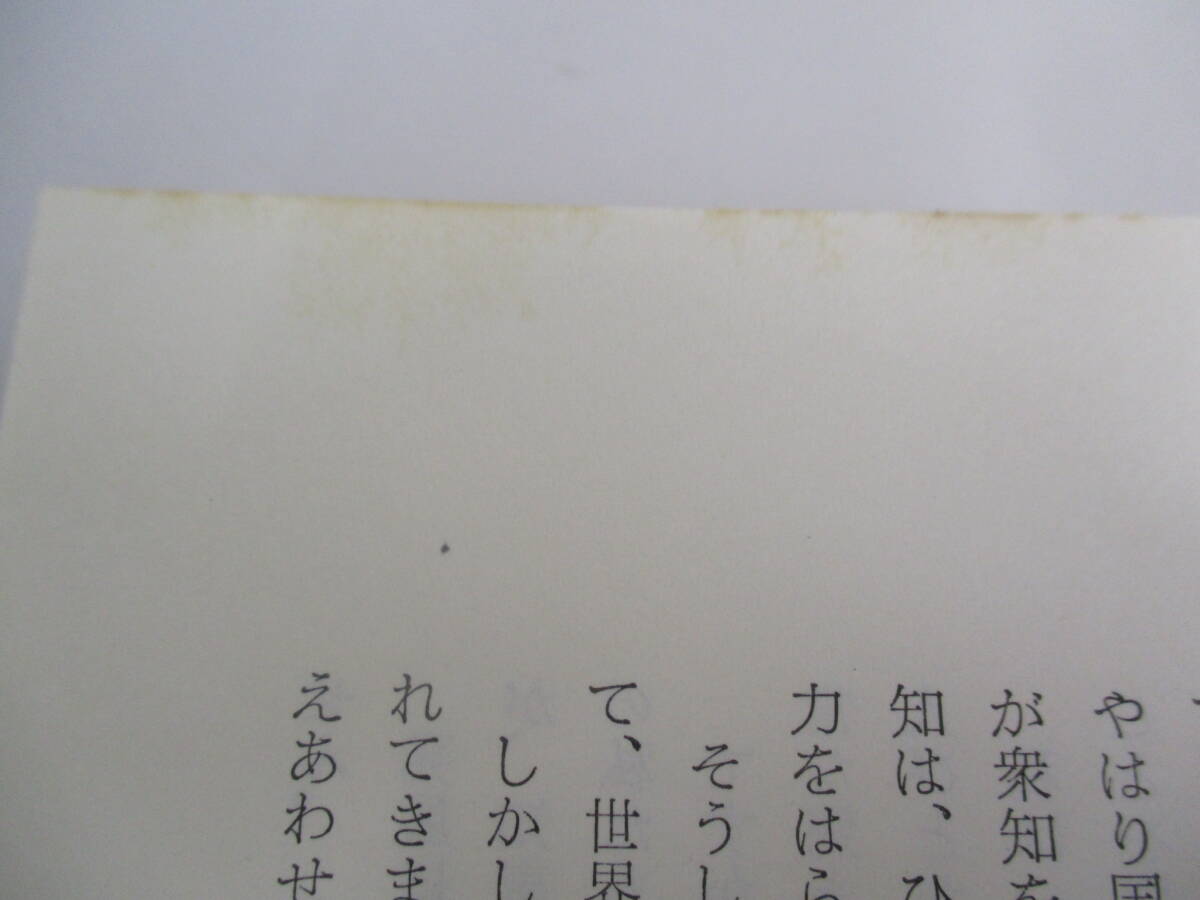 やはり国
が衆知を
知は、ひ
力をはら
そうし
て、世界
しかし
れてきま
えあわせ